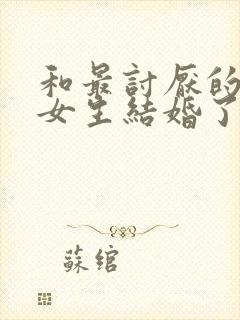 和最討厭的
女生結婚了
蘇绾